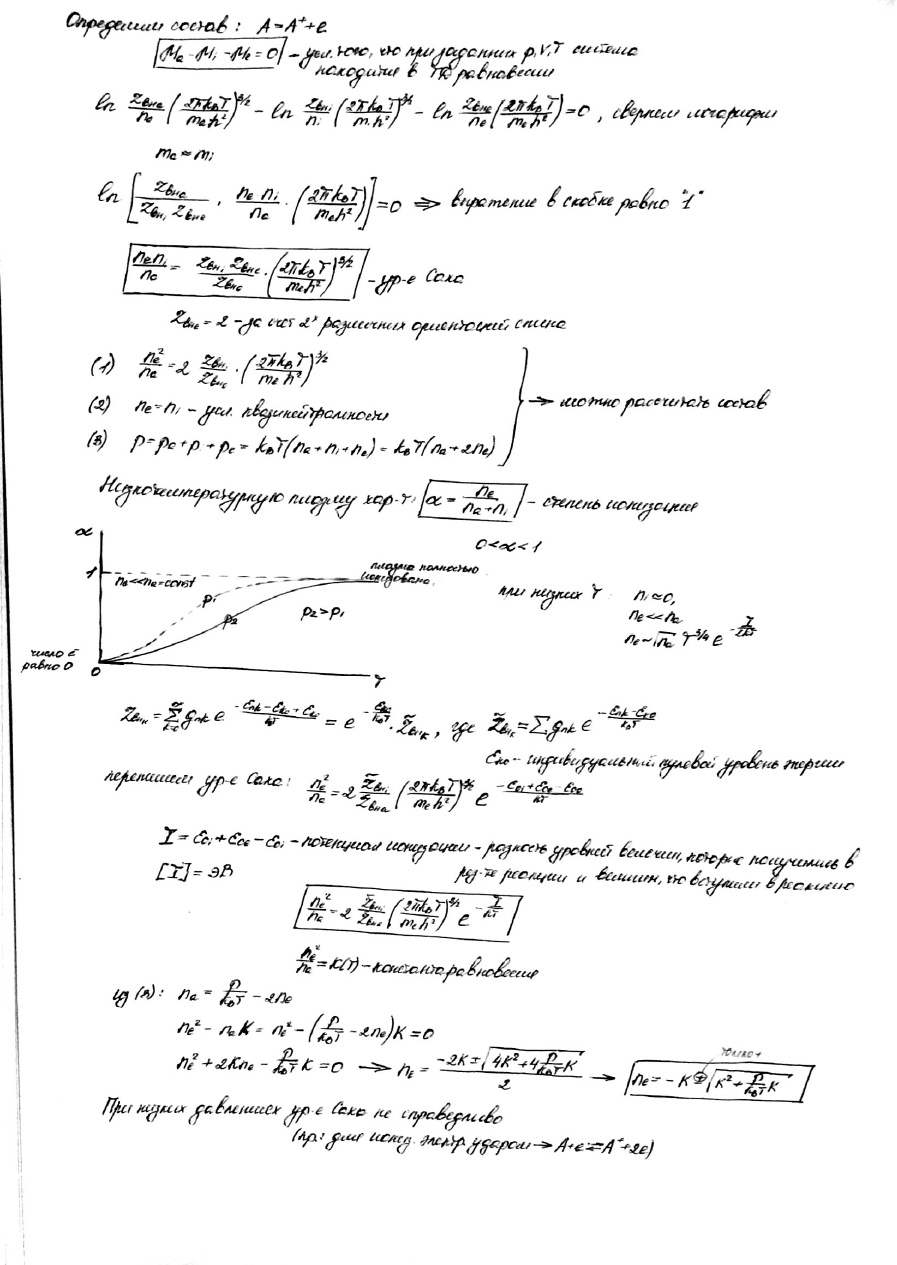 Определим состав: A = A⁺ + e
μa - μi - μe = 0 – усл. того, что при заданных p, V, T система
находится в ТД равновесии
ln Zвнa/na (2πkБT/mₑh²)^3/2 - ln Zвнi/ni (2πkБT/m h²)^3/2 - ln Zвнe/ne (2πkБT/mₑh²) = 0, свернем логарифм
ma ≈ mi
ln [Zвнa/(Zвнi Zвнe) · ne ni/na · (2πkБT/mₑh²)] = 0 ⇒ выражение в скобке равно "1"
ne ni/na = Zвнi Zвнe/Zвнa · (2πkБT/mₑh²)^3/2 – ур-е Саха
Zвнe = 2 – за счет 2ˣ различных ориентаций спина
(1) ne²/na = 2 Zвнi/Zвнa · (2πkБT/mₑh²)^3/2
(2) ne = ni – усл. квазинейтральности
→ можно рассчитать состав
(3) p = pa + pi + pe = kБT(na + ni + ne) = kБT(na + 2ne)
Низкотемпературную плазму хар-т: α = ne/(na + ni) – степень ионизации
0 < α < 1
α
1
ne << na = const
плазма полностью
ионизована
p₁
p₂
p₂ > p₁
при низких T: ni ≈ 0,
ne << na
ne ~ √na T^3/4 e^-I/2kT
число e
равно 0
0
T
Zвнk = Σ gnk e^-(εnk - εko + εko)/kT = e^-εko/kБT · Z̃внk, где Z̃внk = Σ gnk e^-(εnk - εko)/kБT
εko – индивидуальный нулевой уровень энергии
перепишем ур-е Саха: ne²/na = 2 Z̃внi/Z̃внa (2πkБT/mₑh²)^3/2 e^-(εoi + εoe - εoa)/kT
I = εoi + εoe - εoi – потенциал ионизации – разность уровней величин, которые получились в
[I] = эВ
рез-те реакции и величин, что вступили в реакцию
ne²/na = 2 Z̃внi/Z̃внa (2πkБT/mₑh²)^3/2 e^-I/kT
ne²/na = K(T) – константа равновесия
из (3): na = p/kБT - 2ne
ne² - naK = ne² - (p/kБT - 2ne)K = 0
только +
ne² + 2Kne - p/kБT K = 0 → ne = (-2K ± √(4K² + 4 p/kБT K))/2 → ne = -K ⊕ √(K² + p/kБT K)
При низких давлениях ур-е Саха не справедливо
(пр: для иониз. электр. ударом → A + e ⇄ A⁺ + 2e)